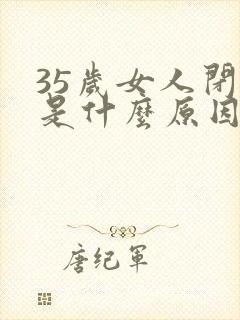 35歲女人閉
是什麼原因
唐纪軍